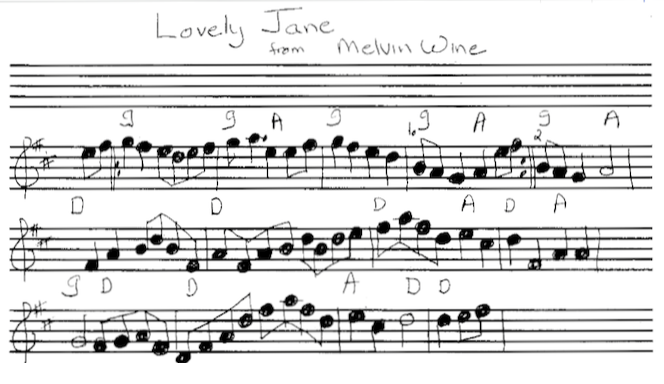 Lovely Jane
from Melvin Wine
G G A G G A G A
1 2
D D D A D A
G D D A D D